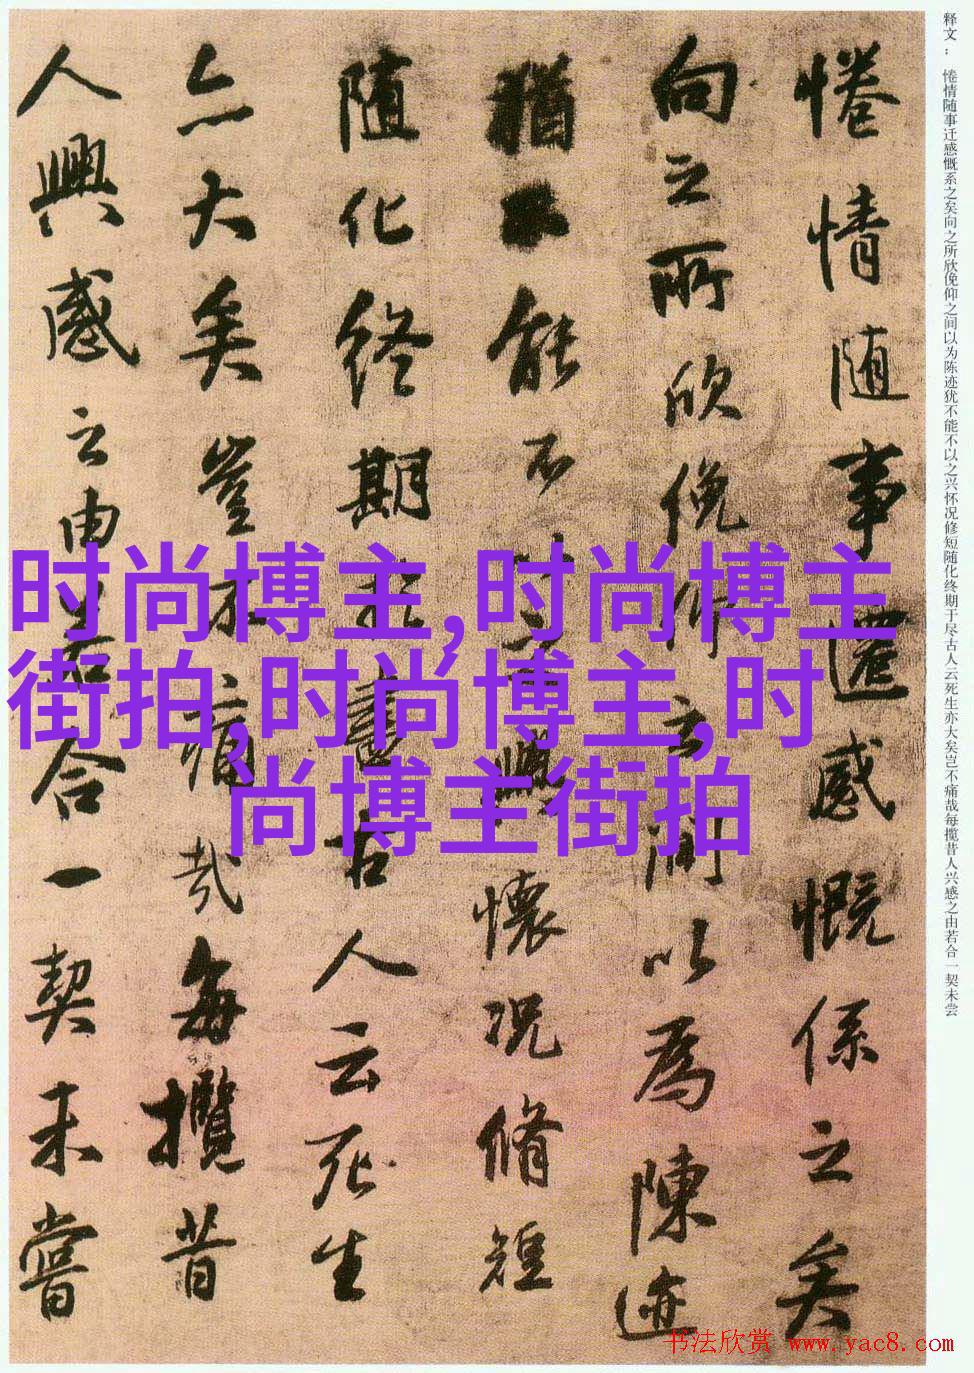 释文：惓情随事迁感慨系之矣向之所欣俛仰之间以为陈迹犹不能不以之兴怀况修短随化终期于尽古人云死生亦大矣岂不痛哉每揽昔人兴感之由若合一契未尝
惓情随事遷感慨係之矣
向之所欣俛仰之間以為陳迹
猶不能不以之興懷況脩短
随化終期於盡古人云死生
亦大矣豈不痛哉每攬昔
人興感之由若合一契未嘗
时尚博主,时尚博主
街拍,时尚博主,时
尚博主街拍
书法欣赏 www.yac8.com